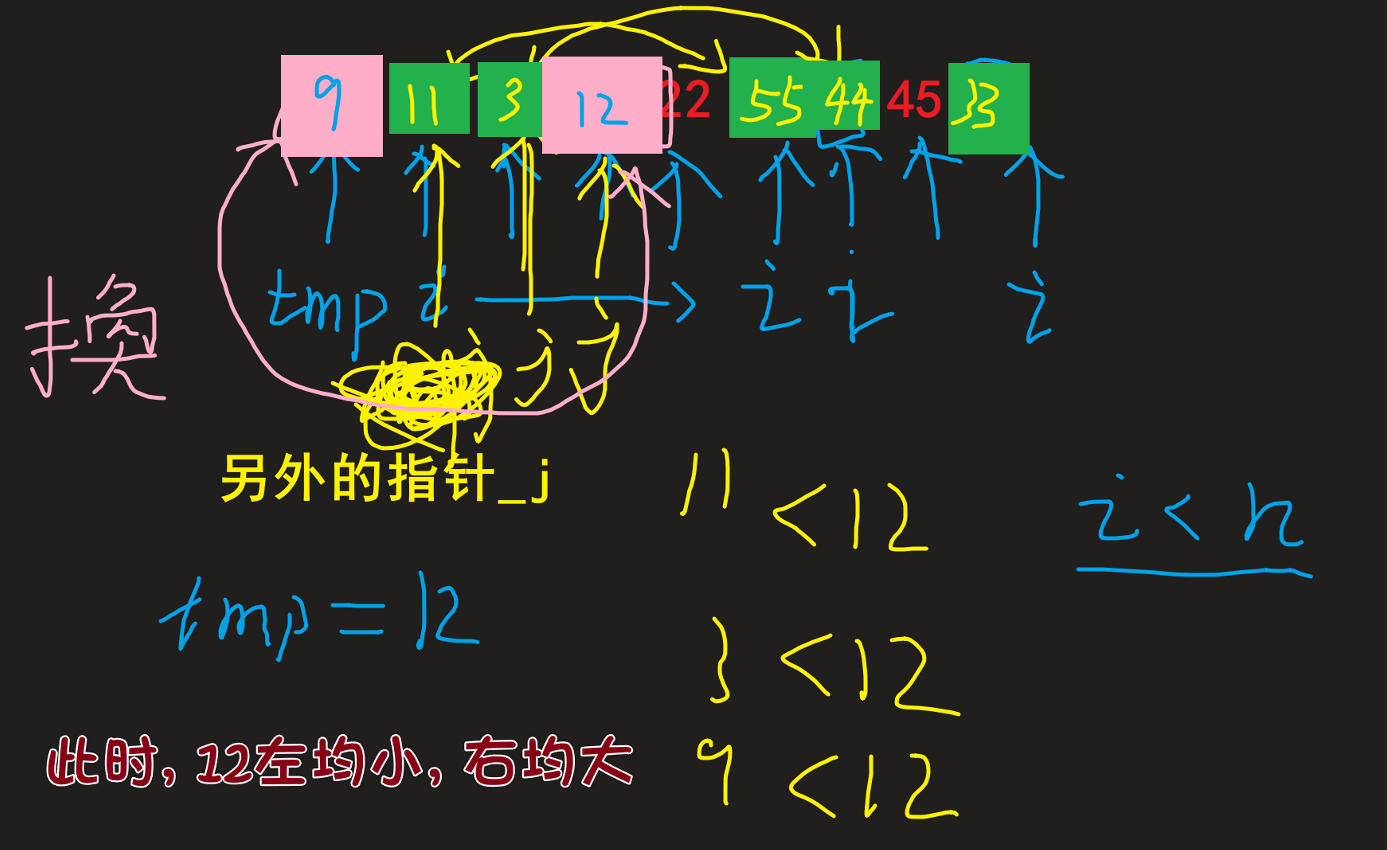 9 11 3 12 22 55 44 45 33
tmp i i i i
换
j j j
另外的指针_j
11 < 12
i < n
tmp = 12
3 < 12
此时, 12左均小, 右均大
9 < 12